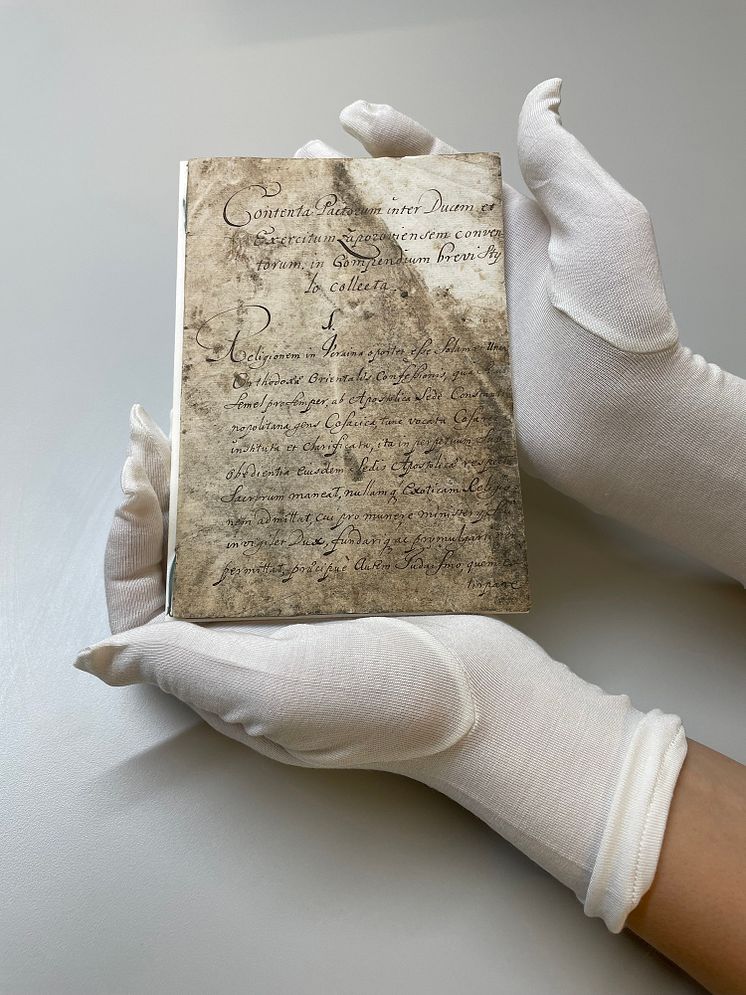 Contenta Pactorum inter Ducem et
Exercitum Zaporoviensem conven
torum, in Compendium brevi Sty
lo collecta.
1.
Religionem in Ucraina oportet esse Solam Unam
Orthodoxæ Orientalis Confessionis, quæ
Semel pro semper, ab Apostolica Sede Constanti
nopolitana gens Cosacica tunc vocata Cosarum
instituta et clarificata, ita in perpetuum sub
Obedientia Eiusdem Sedis Apostolicæ
maneat, nullamq Exoticam Religio
nem admittat, cui pro munere
invigilet Dux, fundariqae, promulgari non
permittat, præcipuè Autem Judaismo, quem